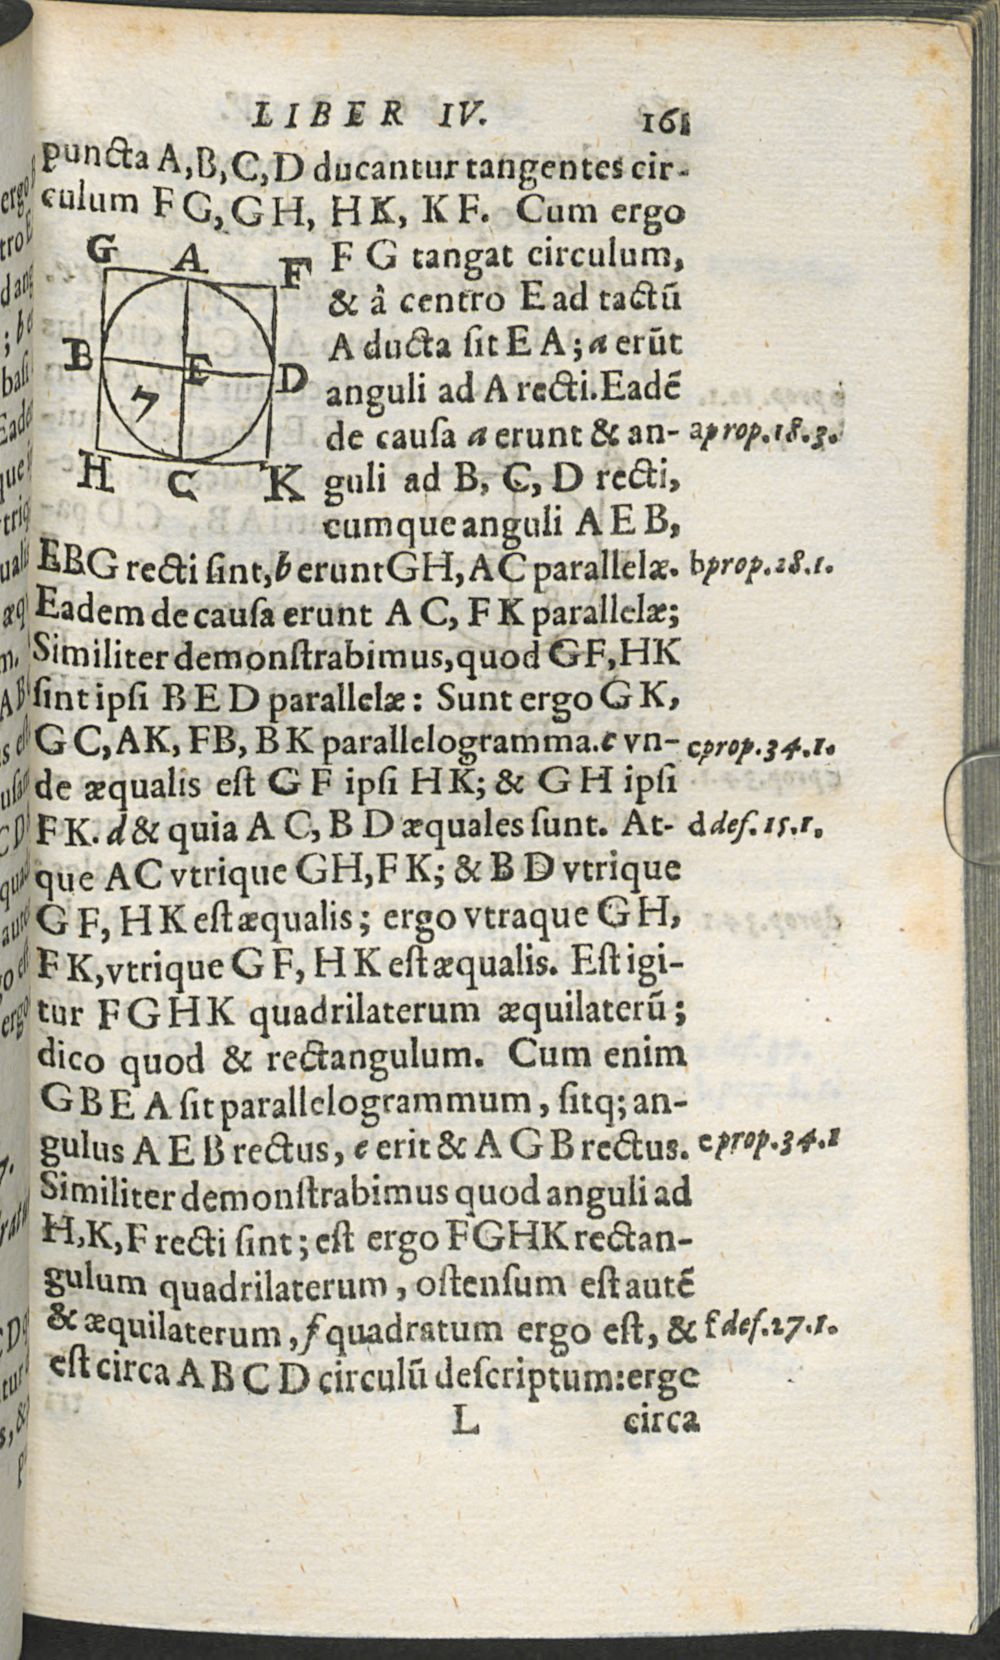 LIBER IV. 161
puncta A,B,C,D ducantur tangentes cir-
culum F G, G H, H K, K F. Cum ergo
F G tangat circulum,
& à centro E ad tactū
A ducta ſit E A; a erūt
anguli ad A recti. Eadē
de cauſa a erunt & an-
a prop.18.3.
guli ad B, C, D recti,
cumque anguli A E B,
G A F
B E D
7
H C K
EBG recti ſint, b erunt GH, AC parallelæ.
b prop.28.1.
Eadem de cauſa erunt A C, F K parallelæ;
Similiter demonſtrabimus, quod GF, HK
ſint ipſi B E D parallelæ: Sunt ergo G K,
G C, AK, FB, B K parallelogramma. c vn-
c prop.34.1.
de æqualis eſt G F ipſi H K; & G H ipſi
F K. d & quia A C, B D æquales ſunt. At-
d def.15.1.
que A C vtrique GH, F K; & B D vtrique
G F, H K eſt æqualis; ergo vtraque G H,
F K, vtrique G F, H K eſt æqualis. Eſt igi-
tur F G H K quadrilaterum æquilaterū;
dico quod & rectangulum. Cum enim
G B E A ſit parallelogrammum, ſitq; an-
gulus A E B rectus, e erit & A G B rectus.
e prop.34.1
Similiter demonſtrabimus quod anguli ad
H, K, F recti ſint; eſt ergo FGHK rectan-
gulum quadrilaterum, oſtenſum eſt autē
& æquilaterum, f quadratum ergo eſt, &
f def.27.1.
eſt circa A B C D circulū deſcriptum: ergo
L circa